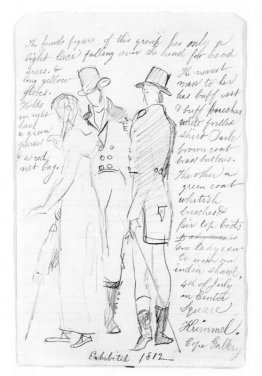 The female figure of this group has only a
light lace falling over the head for head
dress.
long yellow
gloves.
Holds
in right
hand
a green
& a red
net bag.
The nearest
man to her
has buff vest
& buff breeches
white frilled
shirt Dark
brown coat
brass buttons.
The other a
green coat
whitish
breeches &
fair top boots
is
One lady seen
to wear an
india shawl
4th of July
in Centre
Square
Krimmel.
Exhibited 1812